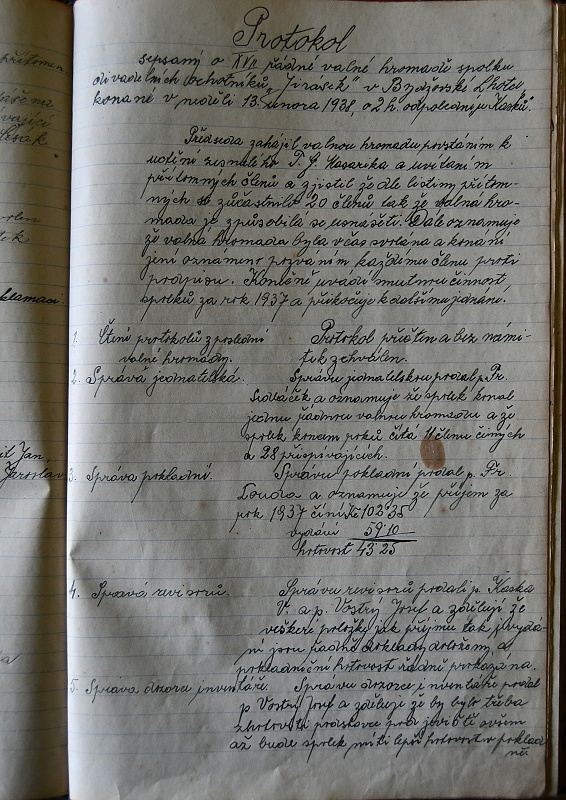 Protokol
sepsaný o XVII řádné valné hromadě spolku
divadelních ochotníků „Jirásek" v Bydžovské Lhotce
konané v neděli 13. února 1938, o 2 h. odpoledne, u Kasků.
Předseda zahájil valnou hromadu povstáním k
uctění zesnulého T. G. Masaryka a uvítáním
přítomných členů a zjistil že dle listiny přítom-
ných se zúčastnilo 20 členů tak že valná hro-
mada je způsobilá se usnášeti. Dále oznamuje
že valná hromada byla včas svolána a konání
její oznámeno pozváním každému členu proti
podpisu. Konečně uvádí smutnou činnost
spolku za rok 1937 a přikročuje k dalšímu jednání.
1. Čtení protokolů z poslední
valné hromady.
Protokol přečten a bez námi-
tek schválen.
2. Správa jednatelská.
Správu jednatelskou podal p. Fr.
Sedláček a oznamuje že spolek konal
jednu řádnou valnou hromadu a že
spolek koncem roku čítá 11 členů činných
a 28 přispívajících.
3. Správa pokladní.
Správu pokladní podal p. Fr.
Louda a oznamuje že příjem za
rok 1937 činí Kč 102˙35
vydání 59˙10
hotovost 43˙25
4. Správa revisorů.
Správu revisorů podali p. Kaska
V. a p. Vostrý Josef a zdělují že
veškeré položky jak příjmu tak i vydá-
ní jsou řádně doklady doloženy a
pokladniční hotovost řádně prokázána.
5. Správa dozorce inventáře.
Správu dozorce inventáře podal
p. Vostrý Josef a zděluje že by bylo třeba
zhotoviti podstavce pod jeviště ovšem
až bude spolek míti lepší hotovost v poklad
ně.